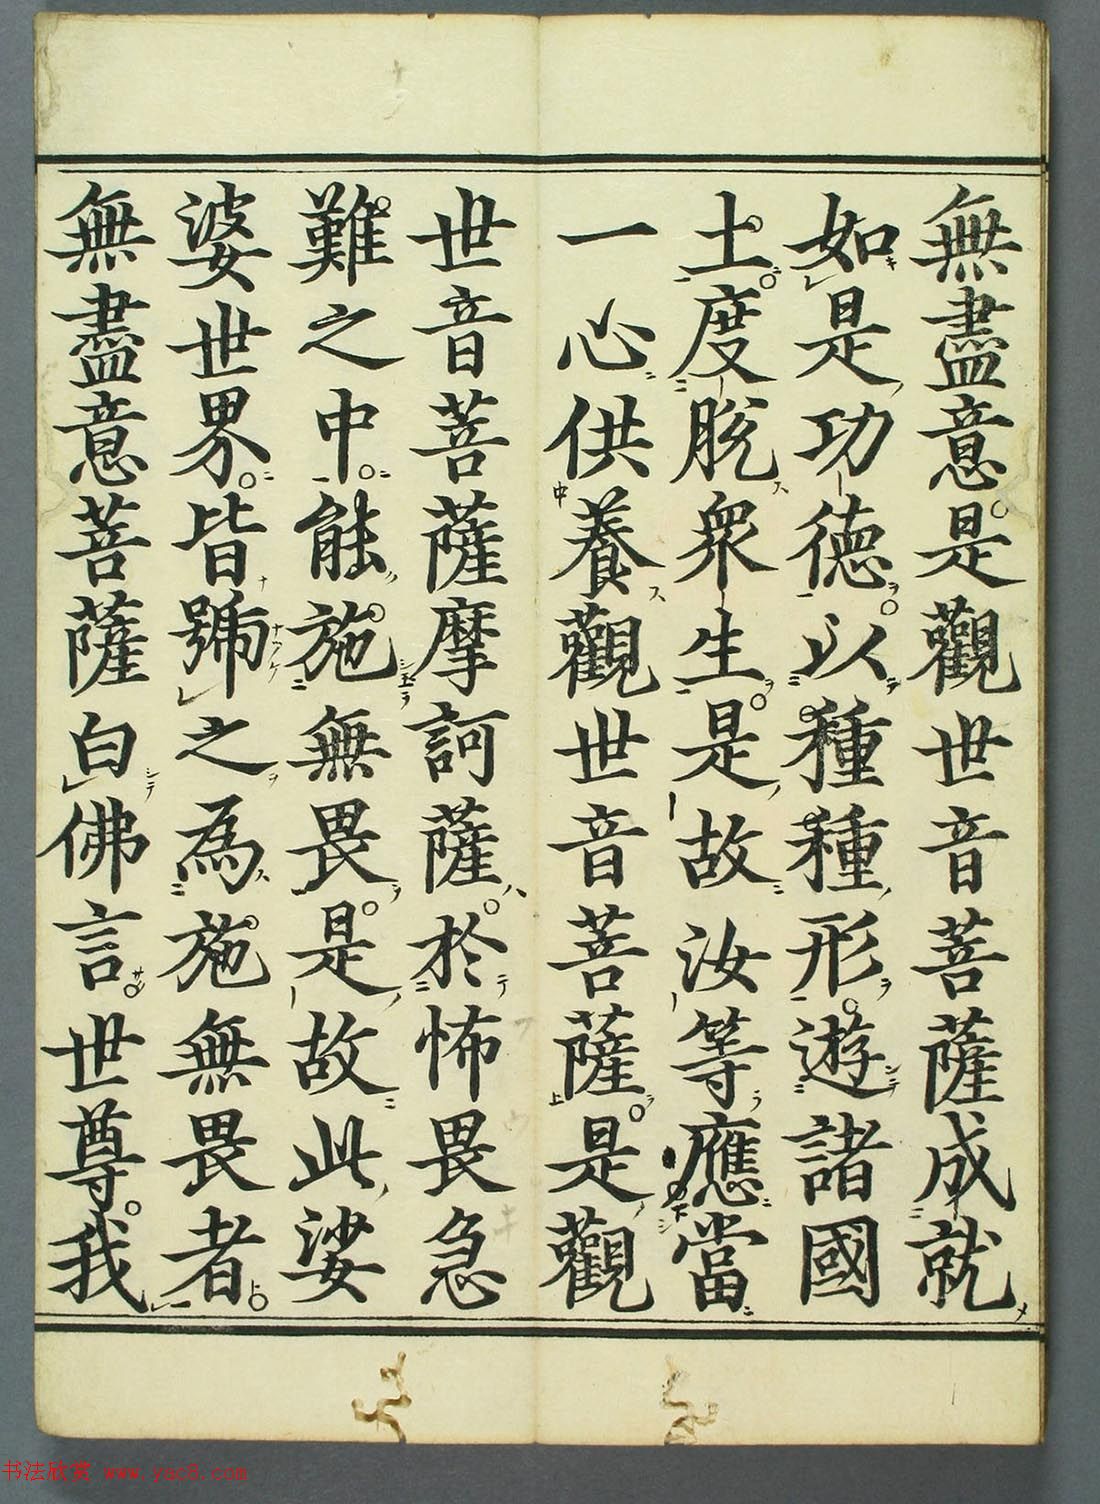 無盡意是觀世音菩薩成就
如是功德以種種形遊諸國
土度脫衆生是故汝等應當
一心供養觀世音菩薩是觀
世音菩薩摩訶薩於怖畏急
難之中能施無畏是故此娑
婆世界皆號之為施無畏者
無盡意菩薩白佛言世尊我
书法欣赏 www.yac8.com